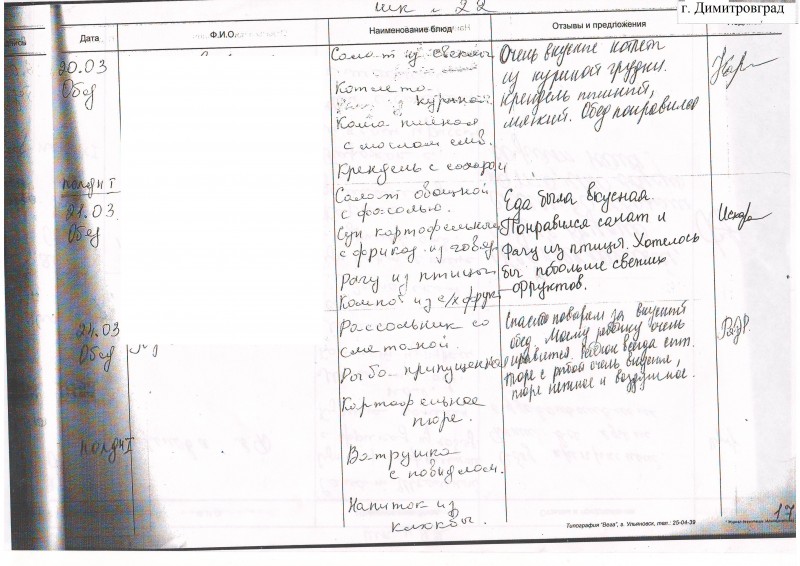 шк № 22
г. Димитровград
Дата
Ф.И.О.
Наименование блюд
Отзывы и предложения
20.03
Обед
Салат из свеклы
Котлета
куриная
Каша пшённая
с маслом слив.
Крендель с сахаром
Очень вкусные котлеты
из куриной грудки.
Крендель пышный,
мягкий. Обед понравился
полдн I
21.03.
Обед
Салат овощной
с фасолью.
Суп картофельный
с фрикад. из говяд.
Рагу из птицы
Компот из с/х фрукт
Еда была вкусная.
Понравился салат и
Рагу из птицы. Хотелось
бы побольше свежих
фруктов.
24.03
Обед
Рассольник со
сметаной.
Рыба припущенная
Картофельное
пюре.
Спасибо поварам за вкусный
обед. Моему ребенку очень
нравится. Ребенок всегда сыт.
Пюре с рыбой очень вкусные,
пюре нежное и воздушное.
полдн I
Ватрушка
с повидлом.
Напиток из
клюквы.
Типография "Вега", г. Ульяновск, тел.: 25-04-39
17